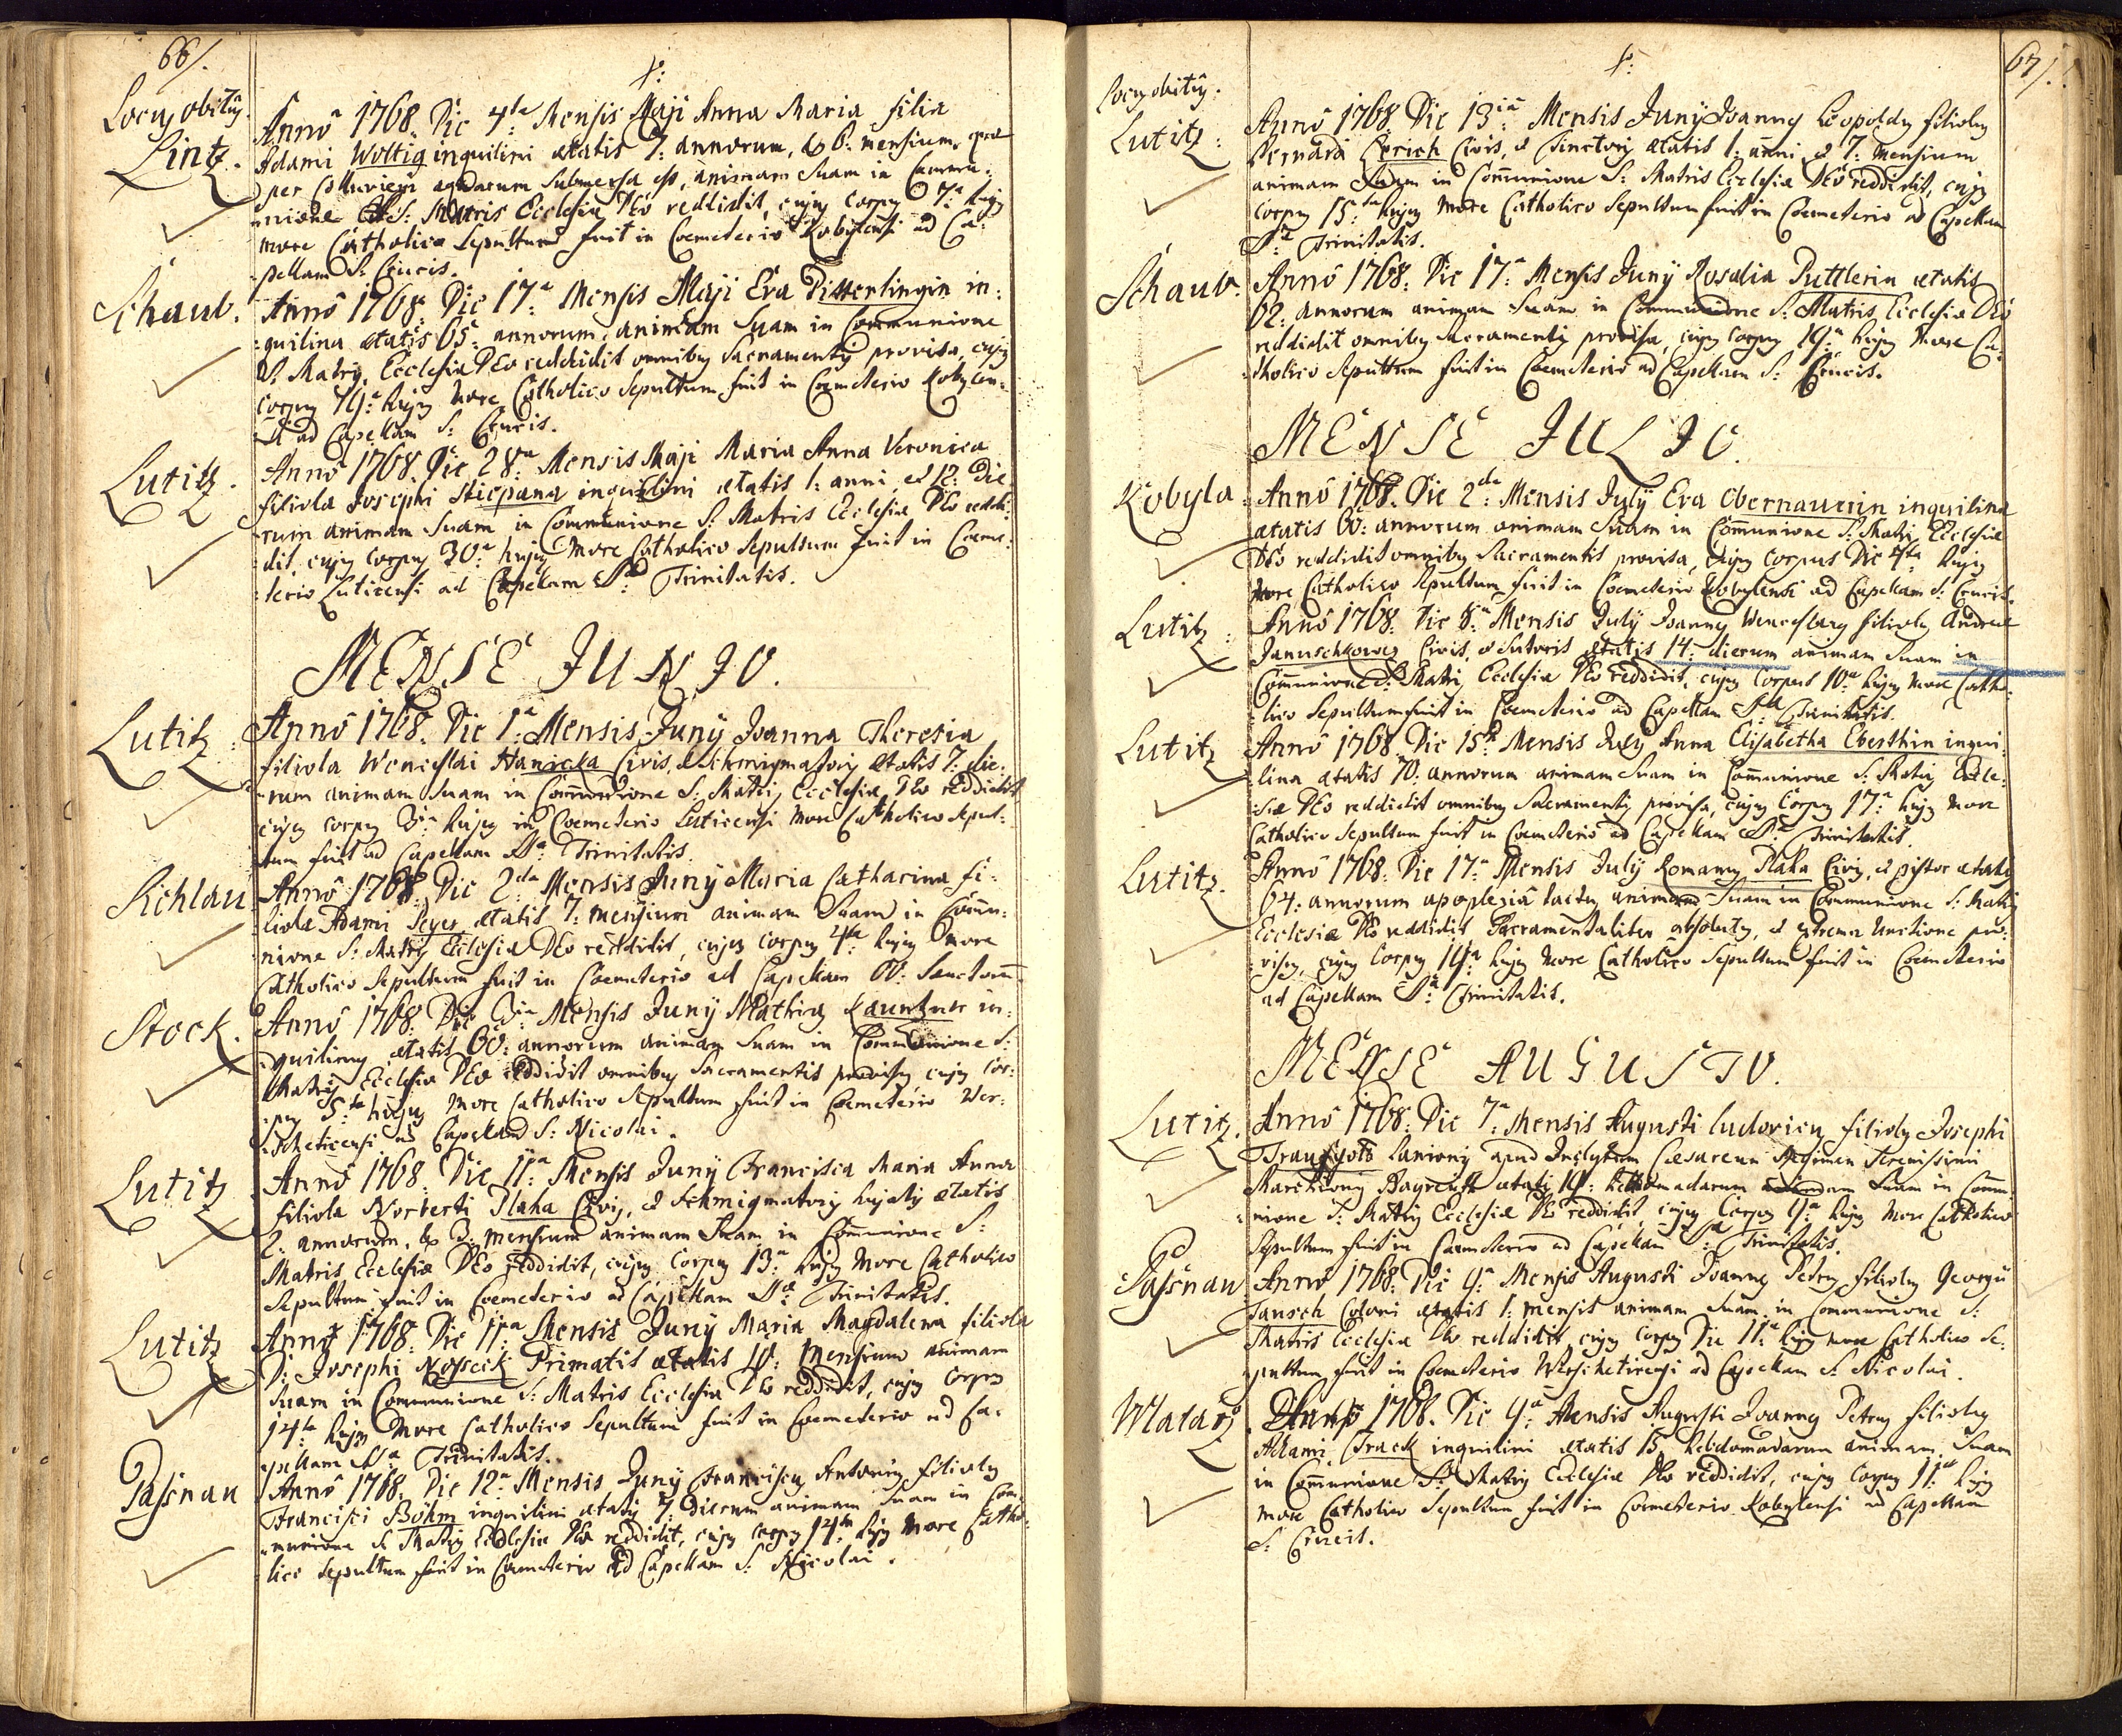 66/.
Locus obitus.
Lintz.
Anno 1768. Die 4ta Mensis Maji Anna Maria filia
Adami Woltig inquilini ætatis 7: annorum, & 6: mensium, quæ
per aquarum submersa est, animam Suam in Commu:
nione S: Matris Ecclesiæ DEo reddidit, cujus Corpus 7a hujus
more Catholico Sepultum fuit in Coemeterio Kobylensi ad Ca:
pellam S: Crucis.
Schaub.
Anno 1768. Die 17a Mensis Maji Eva in:
quilina ætatis 65: annorum, animam Suam in Communione
S: Matris Ecclesiæ DEo reddidit omnibus Sacramentis provisa, cujus
Corpus 19a hujus More Catholico Sepultum fuit in Coemeterio Kobylen:
si ad Capellam S: Crucis.
Lutitz.
Anno 1768. Die 28a Mensis Maji Maria Anna Veronica
filiola Josephi Stiepana inquilini ætatis 1: anni et 12: Die:
rum animam Suam in Communione S: Matris Ecclesiæ DEo reddi:
dit, cujus Corpus 30a hujus More Catholico Sepultum fuit in Coeme:
terio Luticensi ad Capellam SSæ Trinitatis.
MENSE JUNIO.
Lutitz:
Anno 1768. Die 1a Mensis Juny Joanna Theresia
filiola Wenceslai Hanicka Civis, et Schmigmatory ætatis 7: die:
rum animam Suam in Communione S: Matris Ecclesiæ DEo reddidit
cujus Corpus 3a hujus in Coemeterio Luticensi More Catholico Sepul:
tum fuit ad Capellam SSæ Trinitatis.
Richlau
Anno 1768. Die 2da Mensis Juny Maria Catharina fi:
liola Adami Seyer ætatis 7: mensium animam Suam in Commu:
nione S: Matris Ecclesiæ DEo reddidit, cujus Corpus 4ta hujus More
Catholico Sepultum fuit in Coemeterio ad Capellam OO: Sanctorum.
Stock.
Anno 1768. Die 3a Mensis Juny Mathias Kauntzner in:
quilinus ætatis 60: annorum animam Suam in Communione S:
Matris Ecclesiæ DEo reddidit omnibus Sacramentis provisus, cujus Cor:
pus 5ta hujus More Catholico Sepultum fuit in Coemeterio Wer:
scheticensi ad Capellam S: Nicolai.
Lutitz
Anno 1768. Die 11a Mensis Juny Francisca Maria Anna
filiola Norberti Plaha Civis, et Schmigmatory hujatis ætatis
2: annorum, & 3: mensium animam Suam in Communione S:
Matris Ecclesiæ DEo reddidit, cujus Corpus 13a hujus More Catholico
Sepultum fuit in Coemeterio ad Capellam SSæ Trinitatis.
Lutitz
Anno 1768. Die 11a Mensis Juny Maria Magdalena filiola
D: Josephi Nosseck Primatis ætatis 10: Mensium animam
Suam in Communione S: Matris Ecclesiæ DEo reddidit, cujus Corpus
14ta hujus More Catholico Sepultum fuit in Coemeterio ad Ca:
pellam SSa Trinitatis.
Passnau
Anno 1768. Die 12a Mensis Juny Franciscus Antonius filiolus
Francisci Böhm inquilini ætatis 7: Dierum animam Suam in Com:
munione S: Matris Ecclesiæ DEo reddidit, cujus Corpus 14ta hujus More Catho:
lico Sepultum fuit in Coemeterio ad Capellam S: Nicolai.
67/.
Locus obitus.
Lutitz:
Anno 1768. Die 13ia Mensis Juny Joannes Leopoldus filiolus
Bernardi Lerich Civis, et Tinctoris ætatis 1: anni et 7: Mensium
animam Suam in Communione S: Matris Ecclesiæ DEo reddidit, cujus
Corpus 15ta hujus More Catholico Sepultum fuit in Coemeterio ad Capellam
SSæ Trinitatis.
Schaub:
Anno 1768. Die 17a Mensis Juny Rosalia Puttlerin ætatis
62: annorum animam Suam in Communione S: Matris Ecclesiæ DEo
reddidit omnibus Sacramentis provisa, cujus Corpus 19a hujus More Ca:
tholico Sepultum fuit in Coemeterio ad Capellam S: Crucis.
MENSE JULIO.
Kobyla:
Anno 1768. Die 2da Mensis July Eva Obernauerin inquilina
ætatis 60: annorum animam Suam in Communione S: Matris Ecclesiæ
DEo reddidit omnibus Sacramentis provisa, cujus Corpus Die 4ta hujus
More Catholico Sepultum fuit in Coemeterio Kobylensi ad Capellam S: Crucis.
Lutitz:
Anno 1768. Die 8a Mensis July Joannes Wenceslaus filiolus Andreæ
Januschkowez Civis, et Sutoris ætatis 14: dierum animam Suam in
Communione S: Matris Ecclesiæ DEo reddidit, cujus Corpus 10a hujus More Catho:
lico Sepultum fuit in Coemeterio ad Capellam SSæ Trinitatis.
Lutitz
Anno 1768. Die 15ta Mensis July Anna Elisabetha Eberthin inqui:
lina ætatis 70: annorum animam Suam in Communione S: Matris Eccle:
siæ DEo reddidit omnibus Sacramentis provisa, cujus Corpus 17a hujus More
Catholico Sepultum fuit in Coemeterio ad Capellam SSæ Trinitatis.
Lutitz.
Anno 1768. Die 17a Mensis July Romanus Plaha Civis, et pistor ætatis
64: annorum apoplexiâ tactus animam Suam in Communione S: Matris
Ecclesiæ DEo reddidit Sacramentaliter absolutus, et extrema Unctione pro:
visus, cujus Corpus 19a hujus More Catholico Sepultum fuit in Coemeterio
ad Capellam SSæ Trinitatis.
MENSE AUGUSTO.
Lutitz.
Anno 1768. Die 7a Mensis Augusti Ludovicus filiolus Josephi
Laniony apud Inclytum Cæsareum Regimen Serenissimi
Marchiony Bayreuth ætatis 14: hebdomadarum animam Suam in Commu:
nione S: Matris Ecclesiæ DEo reddidit, cujus Corpus 9a hujus More Catholico
Sepultum fuit in Coemeterio ad Capellam SSæ Trinitatis.
Passnau
Anno 1768. Die 9a Mensis Augusti Joannes Petrus filiolus Georgii
Jansch Coloni ætatis 1: mensis animam Suam in Communione S:
Matris Ecclesiæ DEo reddidit, cujus Corpus Die 11a hujus More Catholico Se:
pultum fuit in Coemeterio Werscheticensi ad Capellam S: Nicolai.
Wladarz
Anno 1768. Die 9a Mensis Augusti Joannes Petrus filiolus
Adami Track inquilini ætatis 15 hebdomadarum animam Suam
in Communione S: Matris Ecclesiæ DEo reddidit, cujus Corpus 11a hujus
more Catholico Sepultum fuit in Coemeterio Kobylensi ad Capellam
S: Crucis.